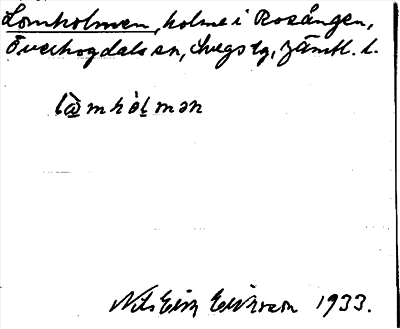 Lomholmen, holme i Rosången,
Överhogdals sn, Svegs tg, Jämtl. l.
lò̱mhò̱lmən
Nils Erik Eriksson 1933.